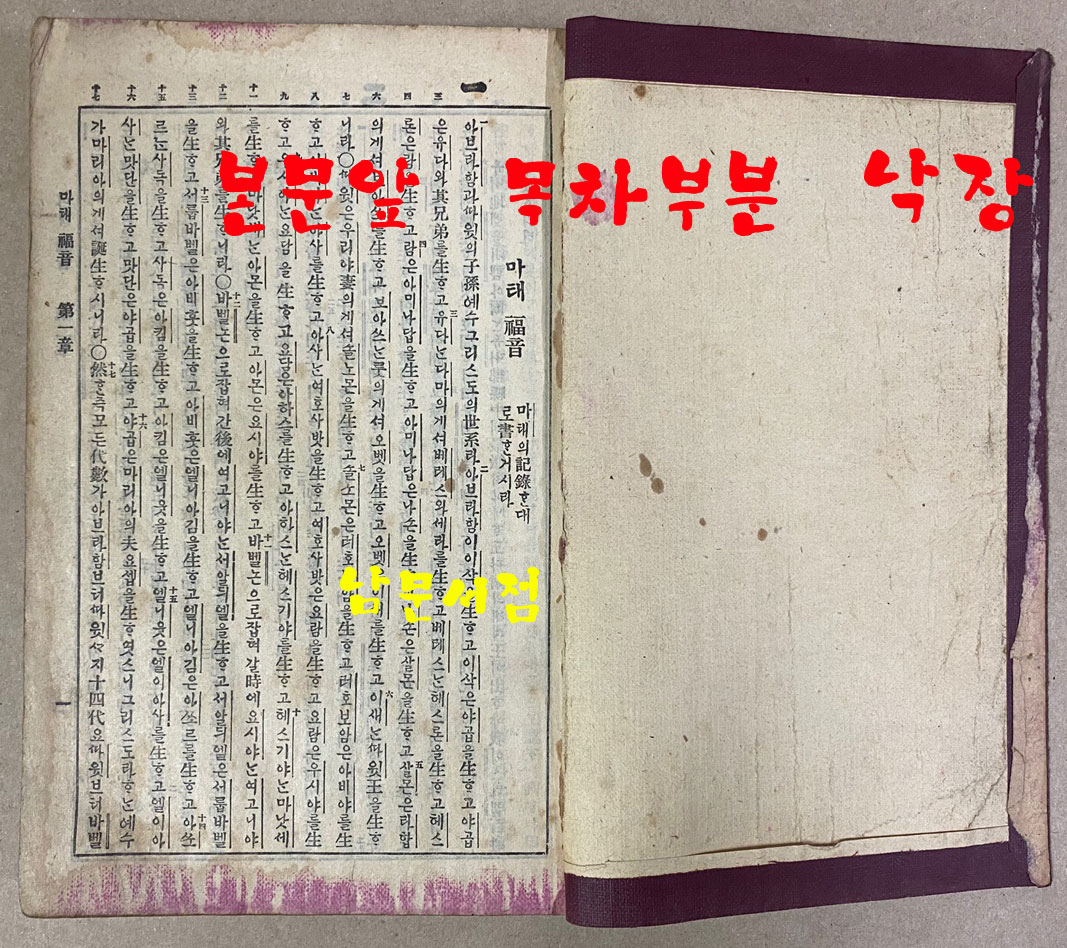 본문앞 목차부분 낙장
남문서점
마태 福音
마태의記錄ᄒᆞᆫ대
로書ᄒᆞᆫ거시라
三 四 六 七 八 九 十一 十二 十三 十五 十六 十七
아브라함과ᄯᅡ윗의子孫예수그리스도의世系라아브라함이이삭을生ᄒᆞ고이삭은야곱을生ᄒᆞ고야곱
은유다와其兄弟를生ᄒᆞ고유다ᄂᆞᆫ다마의게셔베레스와세라를生ᄒᆞ고베레스ᄂᆞᆫ헤스론을生ᄒᆞ고헤스
론은람을生ᄒᆞ고람은아미나답을生ᄒᆞ고아미나답은나손을生 손은살몬을生ᄒᆞ고살몬은라합
의게셔 生ᄒᆞ고보아쓰ᄂᆞᆫ룻의게셔오벳을生ᄒᆞ고오벳 를生ᄒᆞ고이새ᄂᆞᆫᄯᅡ윗王을生ᄒᆞ
니라○ᄯᅡ윗은우리야妻의게셔솔노몬을生ᄒᆞ고솔노몬은러호 암을生ᄒᆞ고러호보암은아비야를生
ᄒᆞ고 ᄂᆞᆫ아사를生ᄒᆞ고아사ᄂᆞᆫ여호사밧을生ᄒᆞ고여호사밧은요람을生ᄒᆞ고요람은우시야를生
ᄒᆞ고우시야ᄂᆞᆫ요담을生ᄒᆞ고요담은아하스를生ᄒᆞ고아하스ᄂᆞᆫ헤스기야를生ᄒᆞ고헤스기야ᄂᆞᆫ마낫세
를生ᄒᆞ 마낫세ᄂᆞᆫ아몬을生ᄒᆞ고아몬은요시야를生ᄒᆞ고바벨논으로잡혀갈時에요시야ᄂᆞᆫ여고니야
와其兄弟를生ᄒᆞ니라○바벨논으로잡혀간後에여고니야ᄂᆞᆫ서알듸엘을生ᄒᆞ고서알듸엘은서룹바벨
을生ᄒᆞ고서룹바벨은아비훗을生ᄒᆞ고아비훗은엘니아김을生ᄒᆞ고엘니아김은아쏘르를生ᄒᆞ고아쏘
르ᄂᆞᆫ사독을生ᄒᆞ고사독은아킴을生ᄒᆞ고아킴은엘니웃을生ᄒᆞ고엘니웃은엘이아사를生ᄒᆞ고엘이아
사ᄂᆞᆫ맛단을生ᄒᆞ고맛단은야곱을生ᄒᆞ고야곱은마리아의夫요셉을生ᄒᆞ엿스니그리스도라ᄒᆞᄂᆞᆫ예수
가마리아의게셔誕生ᄒᆞ시니라○然ᄒᆞᆫ즉모든代數가아브라함브터ᄯᅡ윗ᄭᆞ지十四代요ᄯᅡ윗브터바벨
마태 福音 第一章
一